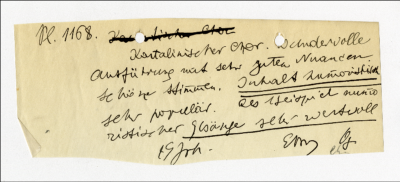 Pl. 1168.
Kartalinischer Chor. Wundervolle
Ausführung mit sehr guten Nuancen.
Schöne Stimmen. Inhalt humoristisch
sehr populär. Als Beispiel humo
ristischer Gesänge sehr wertvoll